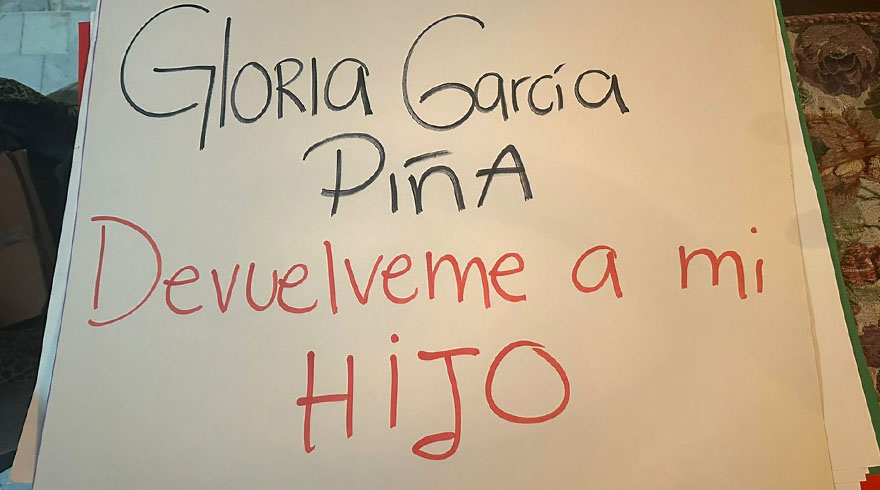 GlORIa García
PiñA
Devuelveme a mi
HiJO